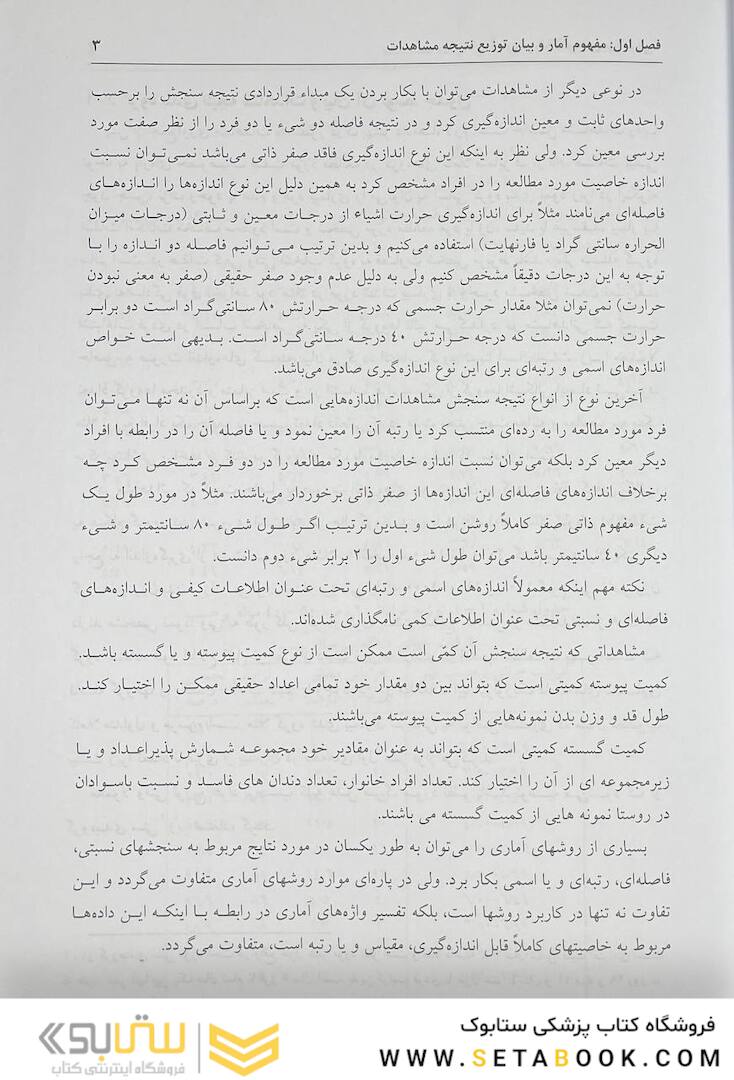 فصل اول: مفهوم آمار و بیان توزیع نتیجه مشاهدات ۳
در نوعی دیگر از مشاهدات می‌توان با بکار بردن یک مبداء قراردادی نتیجه سنجش را برحسب
واحدهای ثابت و معین اندازه‌گیری کرد و در نتیجه فاصله دو شیء یا دو فرد را از نظر صفت مورد
بررسی معین کرد. ولی نظر به اینکه این نوع اندازه‌گیری فاقد صفر ذاتی می‌باشد نمی‌توان نسبت
اندازه خاصیت مورد مطالعه را در افراد مشخص کرد به همین دلیل این نوع اندازه‌ها را اندازه‌های
فاصله‌ای می‌نامند مثلاً برای اندازه‌گیری حرارت اشیاء از درجات معین و ثابتی (درجات میزان
الحراره سانتی گراد یا فارنهایت) استفاده می‌کنیم و بدین ترتیب می‌توانیم فاصله دو اندازه را با
توجه به این درجات دقیقاً مشخص کنیم ولی به دلیل عدم وجود صفر حقیقی (صفر به معنی نبودن
حرارت) نمی‌توان مثلا مقدار حرارت جسمی که درجه حرارتش ۸۰ سانتی‌گراد است دو برابر
حرارت جسمی دانست که درجه حرارتش ۴۰ درجه سانتی‌گراد است. بدیهی است خواص
اندازه‌های اسمی و رتبه‌ای برای این نوع اندازه‌گیری صادق می‌باشد.
آخرین نوع از انواع نتیجه سنجش مشاهدات اندازه‌هایی است که براساس آن نه تنها می‌توان
فرد مورد مطالعه را به رده‌ای منتسب کرد یا رتبه آن را معین نمود و یا فاصله آن را در رابطه با افراد
دیگر معین کرد بلکه می‌توان نسبت اندازه خاصیت مورد مطالعه را در دو فرد مشخص کرد چه
برخلاف اندازه‌های فاصله‌ای این اندازه‌ها از صفر ذاتی برخوردار می‌باشند. مثلاً در مورد طول یک
شیء مفهوم ذاتی صفر کاملاً روشن است و بدین ترتیب اگر طول شیء ۸۰ سانتیمتر و شیء
دیگری ۴۰ سانتیمتر باشد می‌توان طول شیء اول را ۲ برابر شیء دوم دانست.
نکته مهم اینکه معمولاً اندازه‌های اسمی و رتبه‌ای تحت عنوان اطلاعات کیفی و اندازه‌های
فاصله‌ای و نسبتی تحت عنوان اطلاعات کمی نامگذاری شده‌اند.
مشاهداتی که نتیجه سنجش آن کمّی است ممکن است از نوع کمیت پیوسته و یا گسسته باشد.
کمیت پیوسته کمیتی است که بتواند بین دو مقدار خود تمامی اعداد حقیقی ممکن را اختیار کند.
طول قد و وزن بدن نمونه‌هایی از کمیت پیوسته می‌باشند.
کمیت گسسته کمیتی است که بتواند به عنوان مقادیر خود مجموعه شمارش پذیراعداد و یا
زیرمجموعه ای از آن را اختیار کند. تعداد افراد خانوار، تعداد دندان های فاسد و نسبت باسوادان
در روستا نمونه هایی از کمیت گسسته می باشند.
بسیاری از روشهای آماری را می‌توان به طور یکسان در مورد نتایج مربوط به سنجشهای نسبتی،
فاصله‌ای، رتبه‌ای و یا اسمی بکار برد. ولی در پاره‌ای موارد روشهای آماری متفاوت می‌گردد و این
تفاوت نه تنها در کاربرد روشها است، بلکه تفسیر واژه‌های آماری در رابطه با اینکه این داده‌ها
مربوط به خاصیتهای کاملاً قابل اندازه‌گیری، مقیاس و یا رتبه است، متفاوت می‌گردد.
فروشگاه کتاب پزشکی ستابوک
WWW.SETABOOK.COM
ستابوک
فروشگاه اینترنتی کتاب